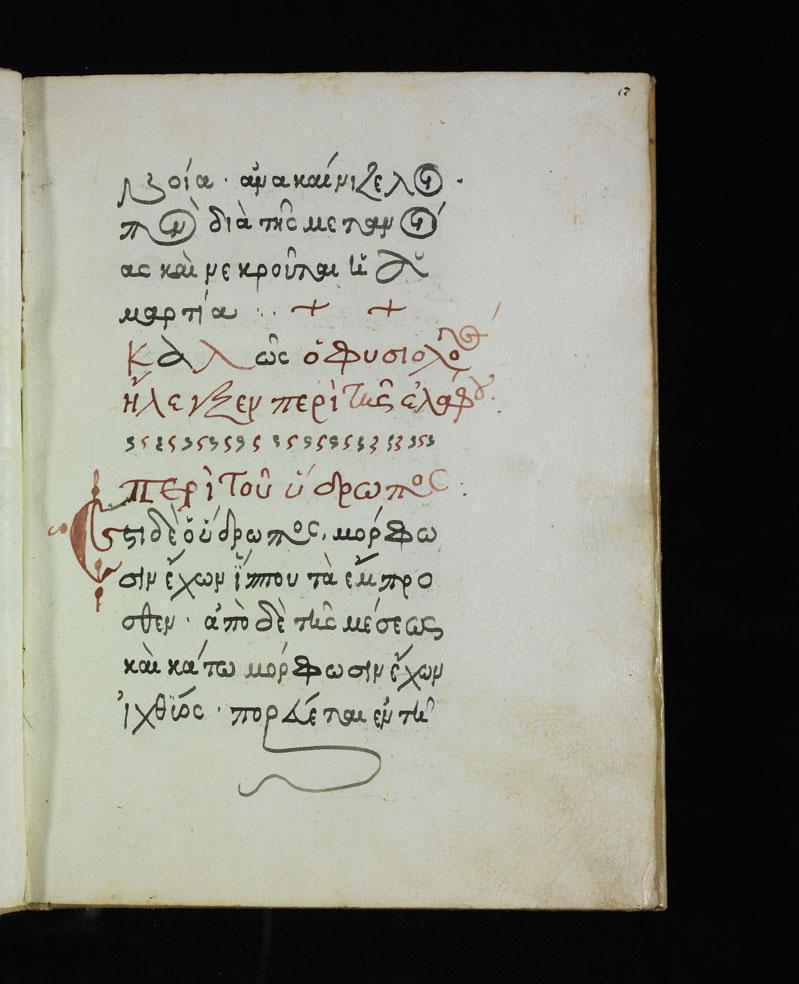 ζοία · ἀνακαίνιζεται ·
πάλιν διὰ τῆς μετανοί
ας καὶ νεκροῦται ἡ ἁ
μαρτία
Καλῶς ὁ Φυσιολόγος
ἤλεγξεν περὶ τῆς ἐλάφου
περὶ τοῦ ὕδρωπος
Ἔστι δὲ ὁ ὕδρωπος, μόρφω
σιν ἔχων ἵππου τὰ ἔμπρο
σθεν · ἀπὸ δὲ τῆς μέσεως
καὶ κάτω μόρφωσιν ἔχων
ἰχθύος · πορεύεται ἐν τῆ